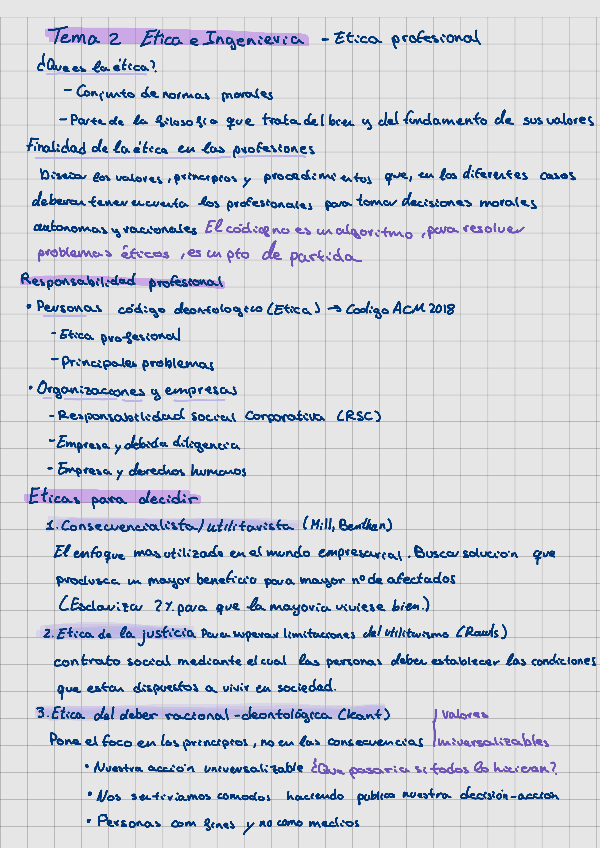 Tema 2 Etica e Ingenieria - Etica profesional
¿Que es la ética?
- Conjunto de normas morales
- Parte de la filosofia que trata del bien y del fundamento de sus valores
Finalidad de la ética en las profesiones
los valores, principios y procedimientos que, en los diferentes casos
deberan tener encuenta los profesionales para tomar decisiones morales
autonomas y racionales El código no es un algoritmo, para resolver
problemas éticos, es un pto de partida
Responsabilidad profesional
• Personas código deontologico (Etica) → Codigo ACM 2018
- Etica profesional
- Principales problemas
• Organizaciones y empresas
- Responsabilidad social Corporativa (RSC)
- Empresa y debida diligencia
- Empresa y derechos humanos
Eticas para decidir
1. Consecuencialista/utilitarista (Mill, Benthan)
El enfoque mas utilizado en el mundo empresarial. Busca solucion que
produzca un mayor beneficio para mayor nº de afectados
(Esclavizar ?% para que la mayoria viviese bien.)
2. Etica de la justicia Para superar limitaciones del utilitarismo (Rawls)
contrato social mediante el cual las personas deben establecer las condiciones
que estan dispuestos a vivir en sociedad.
3. Etica del deber racional - deontológica (Kant)
valores
Pone el foco en los principios, no en las consecuencias universalizables
• Nuestra acción universalizable ¿Que pasaria si todos lo hacieran?
• Nos sentiriamos comodos haciendo publico nuestra decisión-accion
• Personas com fines y no como medios